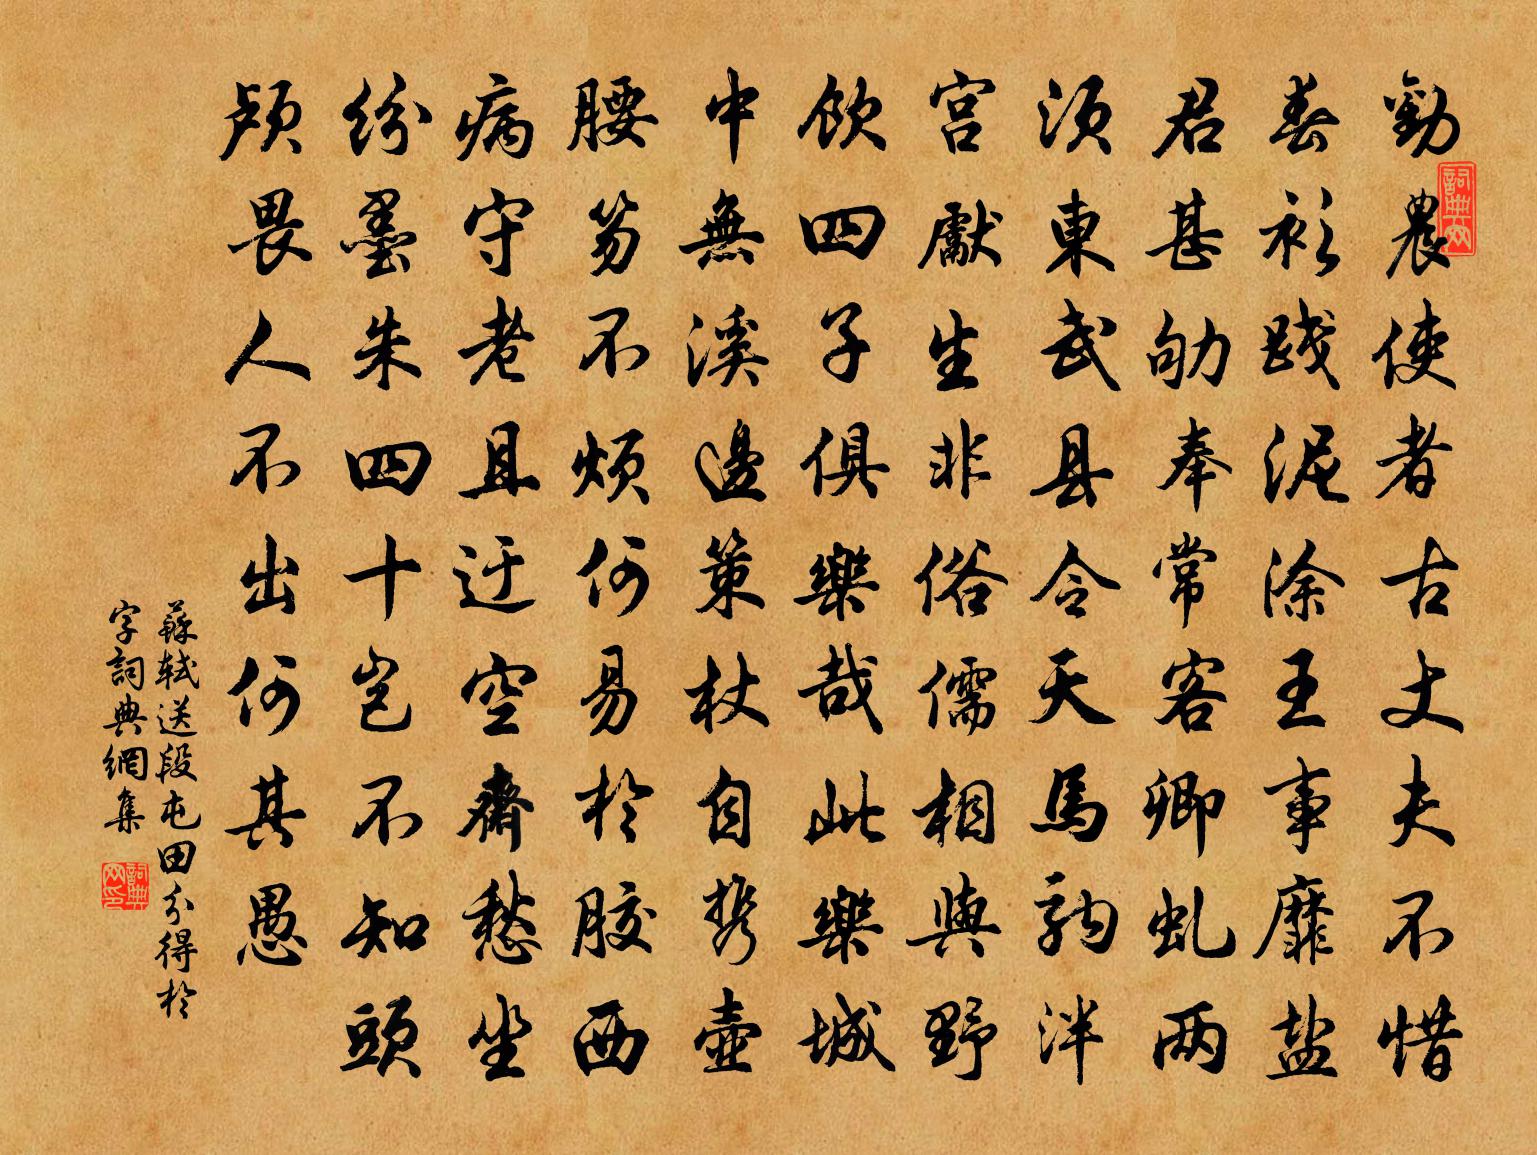 勸農使者古丈夫不惜
春衫踐泥涂王事靡盐
君甚劬奉常客卿虬两
須東武县令天馬駒泮
宫獻生非俗儒相與野
飲四子俱樂哉此樂城
中無溪邊策杖自携壺
腰笏不煩何易於胶西
病守老且迂空齋愁坐
紛墨朱四十岂不知頭
颅畏人不出何其愚
蘇轼送段屯田分得於
字詞典網集
詞典网
詞典网印